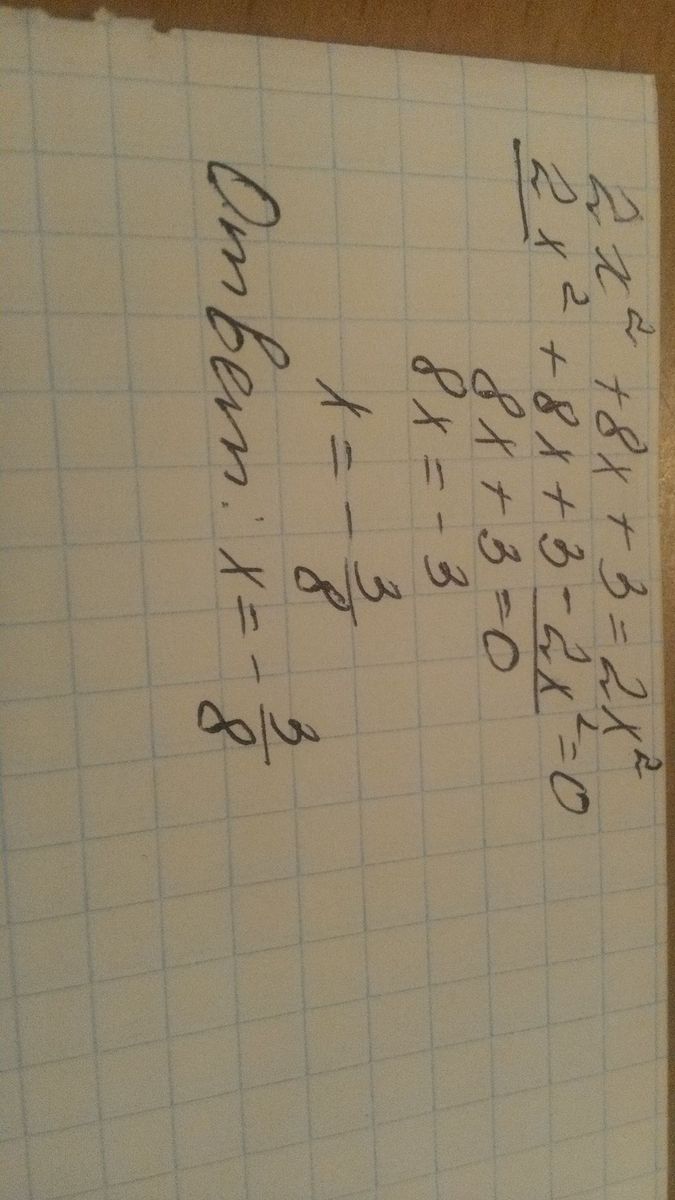 2x² + 8x + 3 = 2x²
2x² + 8x + 3 - 2x² = 0
8x + 3 = 0
8x = - 3
x = - 3/8
Ответ: x = - 3/8